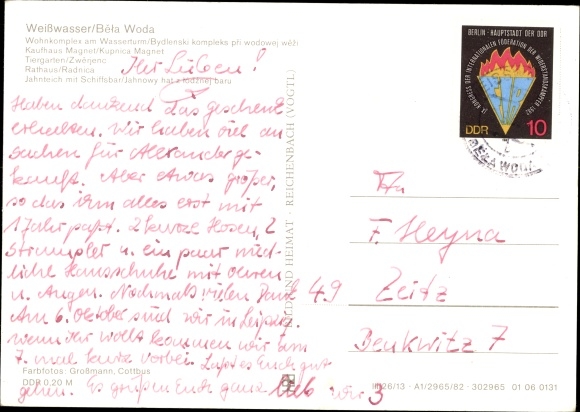 Weißwasser/Běła Woda
Wohnkomplex am Wasserturm/Bydlenski kompleks při wodowej wěži
Kaufhaus Magnet/Kupnica Magnet
Tiergarten/Zwěrjenc
Rathaus/Radnica
Jahnteich mit Schiffsbar/Jahnowy hat z łódźnej baru
Ihr Lieben!
Haben dankend das Geschenk
erhalten. Wir haben viel an
sachen für Alexander ge-
kauft. Aber etwas größer,
so das ihm alles erst mit
1 Jahr paßt. 2 kurze Hosen, 2
Strampler u. ein paar nied-
liche Hausschuhe mit Ohren
u. Augen. Nochmals vielen Dank
Am 6. Oktober sind wir in Leipzig.
wenn ihr wollt kommen wir am
7. mal kurz vorbei. Laßt es Euch gut
gehen. Es grüßen Euch ganz lieb wir 3
Farbfotos: Großmann, Cottbus
DDR 0,20 M
BILD UND HEIMAT · REICHENBACH (VOGTL)
BERLIN · HAUPTSTADT DER DDR
IX. KONGRESS DER INTERNATIONALEN FÖDERATION DER WIDERSTANDSKÄMPFER 1982
DDR 10
BĚŁA WODA
Fa
F. Heyna
49 Zeitz
Beukwitz 7
26/13 · A1/2965/82 · 302965 01 06 0131